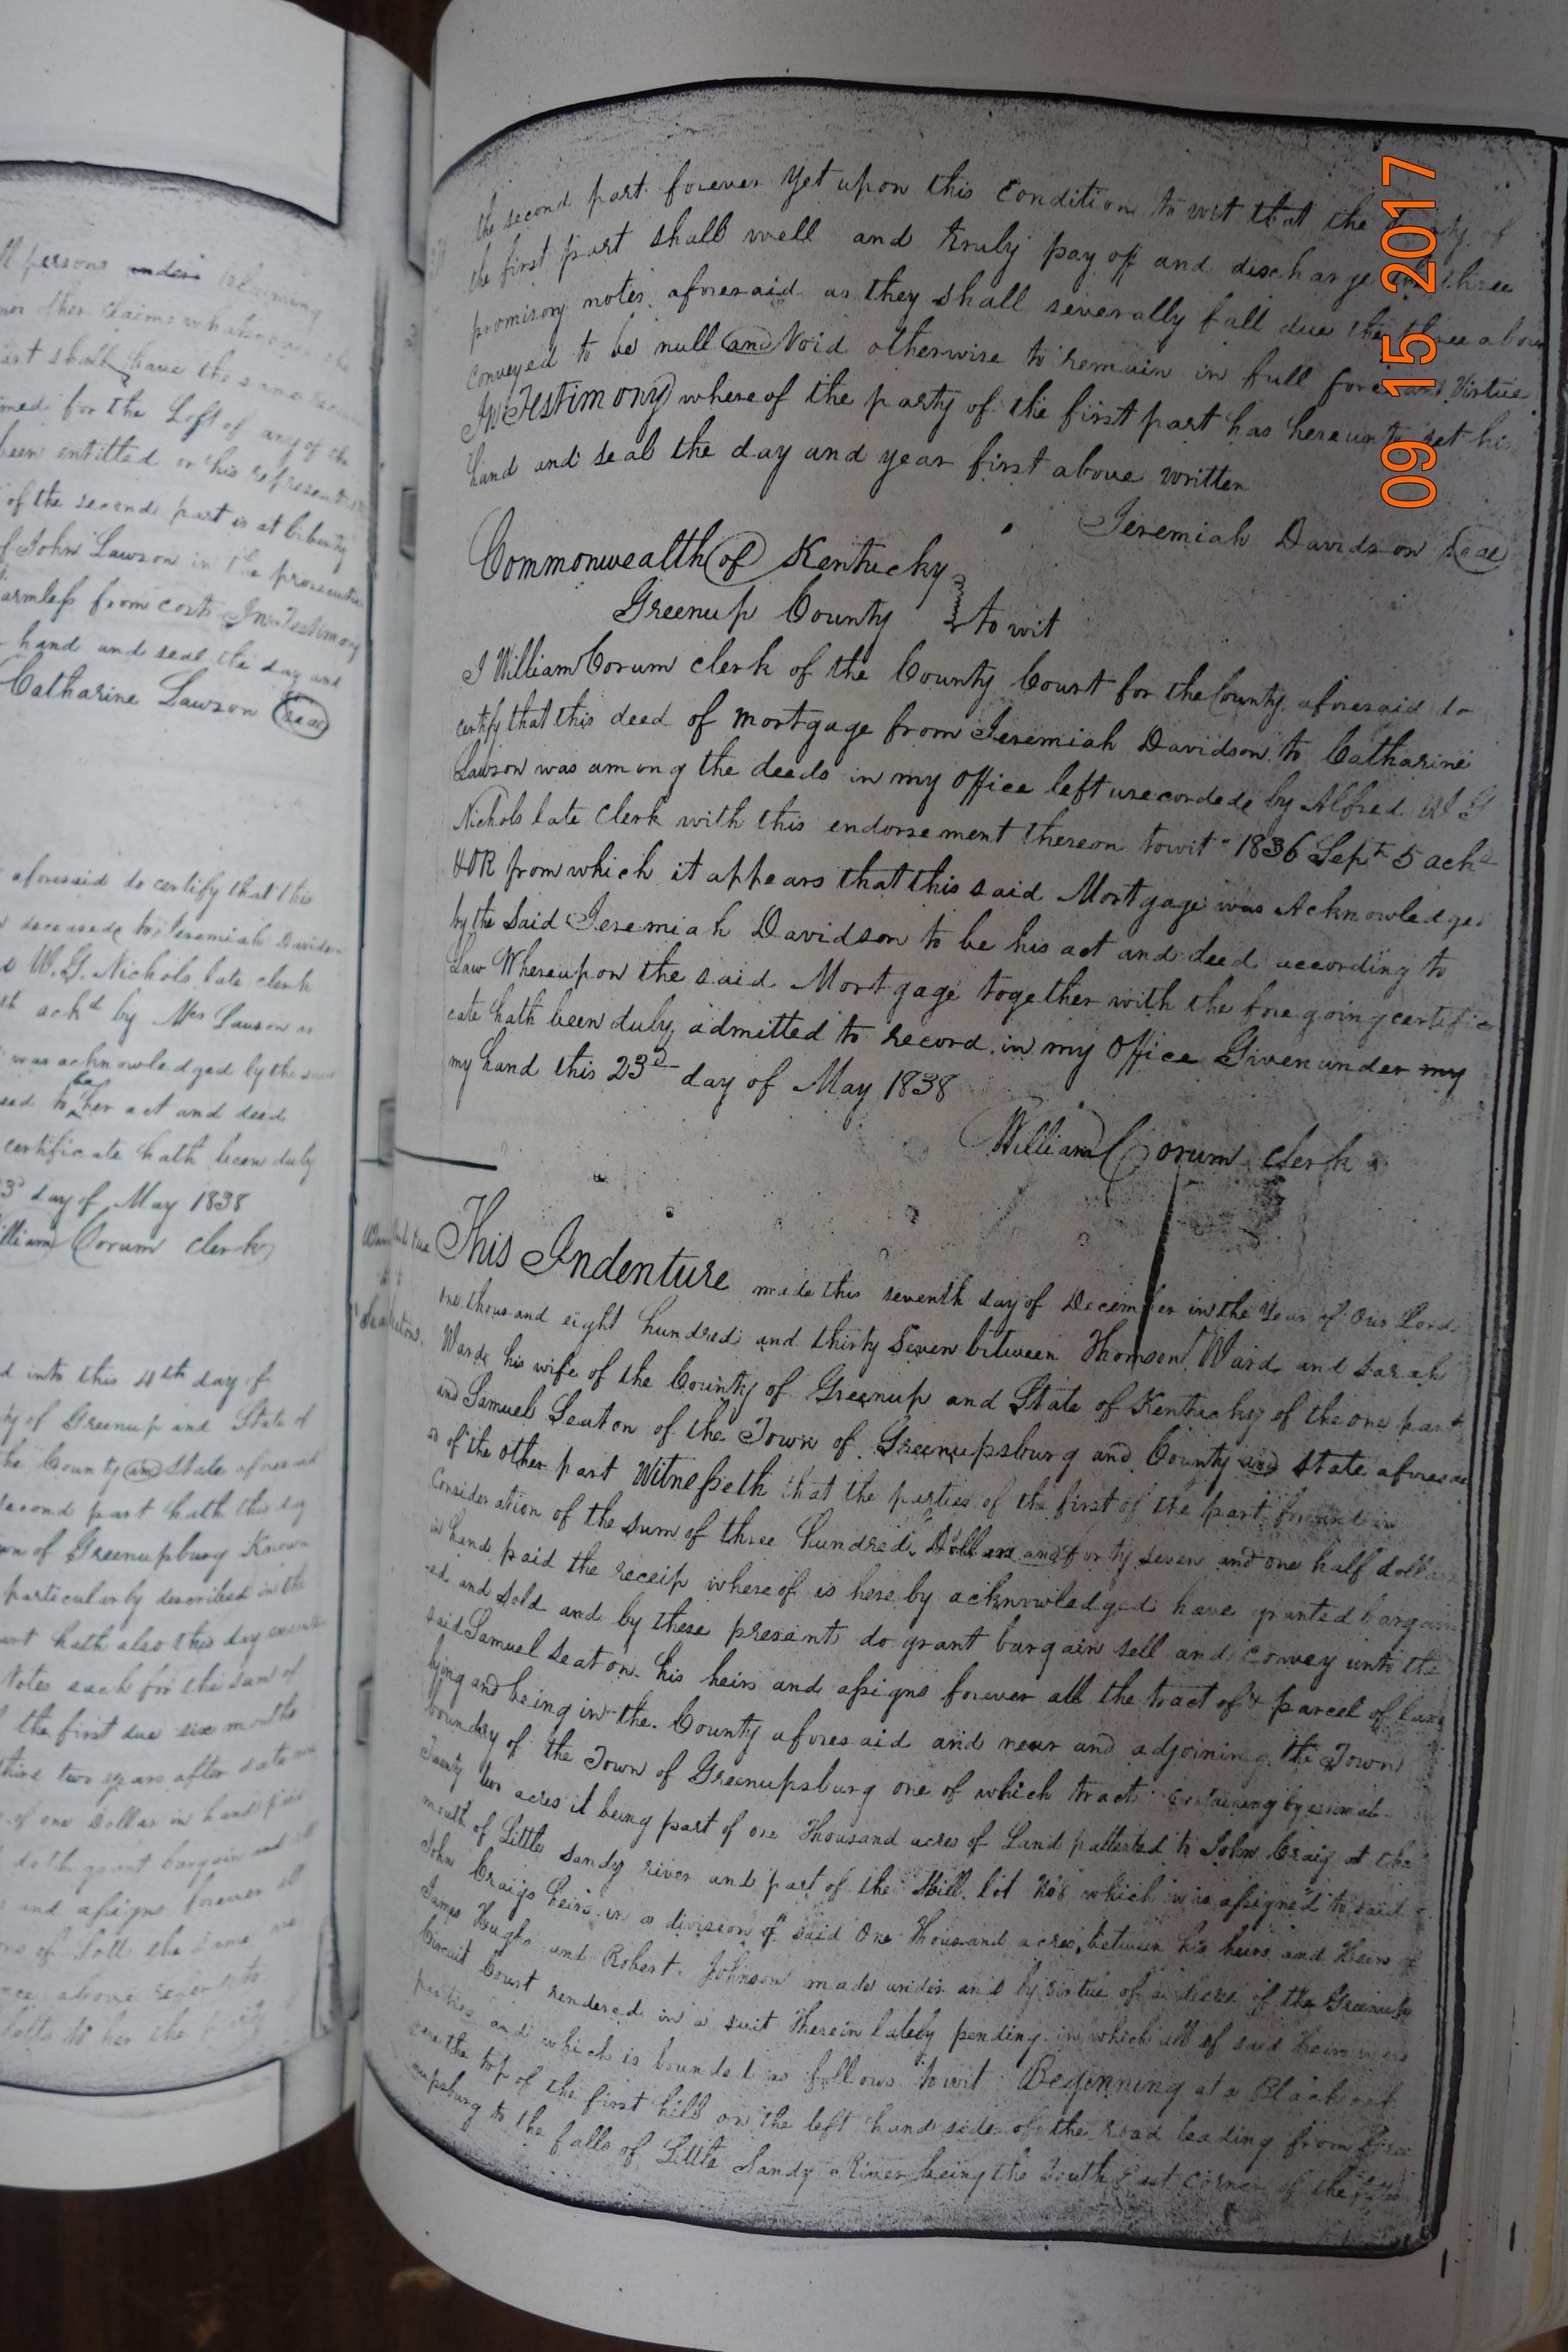 ll persons under claiming
nor their claims whatsoever
art shall have the same
med for the Loss of any of the
been entitled or his represent
of the second part is at liberty
f John Lawson in the prosecution
armless from costs In Testimony
hand and seal the day and
Catharine Lawson Seal
aforesaid do certify that this
deceased to Jeremiah Davids
W. G. Nichols late clerk
ackd by Mrs Lawson as
was acknowledged by the said
sed to be her act and deed
certificate hath been duly
3d day of May 1838
illiam Corum clerk
d into this 4th day of
ty of Greenup and State of
the County and State aforesaid
second part hath this day
wn of Greenupsburg Known
particularly described in the
art hath also this day
Notes each for the sum of
the first due six months
third two years after date
of one Dollar in hand paid
doth grant bargain and
and assigns forever
of Lott the same
above
lotts to her the party
the second part forever yet upon this Condition to wit that the party of
the first part shall well and truly pay off and discharge the three
promisory notes aforesaid as they shall severally fall due the above
conveyed to be null and Void otherwise to remain in full force and Virtue
In Testimony whereof the party of the first part has hereunto set his
hand and seal the day and year first above written
Jeremiah Davidson Seal
Commonwealth of Kentucky
Greenup County to wit
I William Corum clerk of the County Court for the County aforesaid do
certify that this deed of mortgage from Jeremiah Davidson to Catharine
Lawson was among the deeds in my Office left unrecorded by Alfred W G
Nichols late Clerk with this endorsement thereon towit 1836 Sept 5 ackd
&OR from which it appears that this said Mortgage was Acknowledged
by the Said Jeremiah Davidson to be his act and deed according to
Law Whereupon the said Mortgage together with the foregoing certifi
cate hath been duly admitted to record in my Office Given under my
my hand this 23d day of May 1838
William Corum clerk
This Indenture made this seventh day of December in the Year of Our Lord
one thousand eight hundred and thirty Seven between Thomson Ward and Sarah
Ward his wife of the County of Greenup and State of Kentucky of the one part
and Samuel Seaton of the Town of Greenupsburg and County and State aforesaid
of the other part Witnesseth that the parties of the first of the part for and in
Consideration of the sum of three hundred Dollars and forty seven and one half dollars
in hand paid the receip whereof is hereby acknowledged have granted bargain
ed and Sold and by these presents do grant bargain sell and convey unto the
said Samuel Seaton his heirs and assigns forever all the tract of & parcel of land
lying and being in the County aforesaid and near and adjoining the Town
boundry of the Town of Greenupsburg one of which tracts containing by estimat
Twenty two acres it being part of one Thousand acres of Land pattented to John Craig at the
mouth of Little Sandy river and part of the Mill lot No 8 which was assigned to said
John Craigs heirs in a division of said One Thousand acres between his heirs and Heirs of
James Hughs and Robert Johnson made under and by virtue of a decree of the Greenup
Circuit Court rendered in a suit therein lately pending in which all of said heirs were
parties and which is bounded as follows towit Beginning at a Black oak
near the top of the first hill on the left hand side of the road leading from Gree
nupsburg to the falls of Little Sandy River being the South East corner of the
09 15 2017